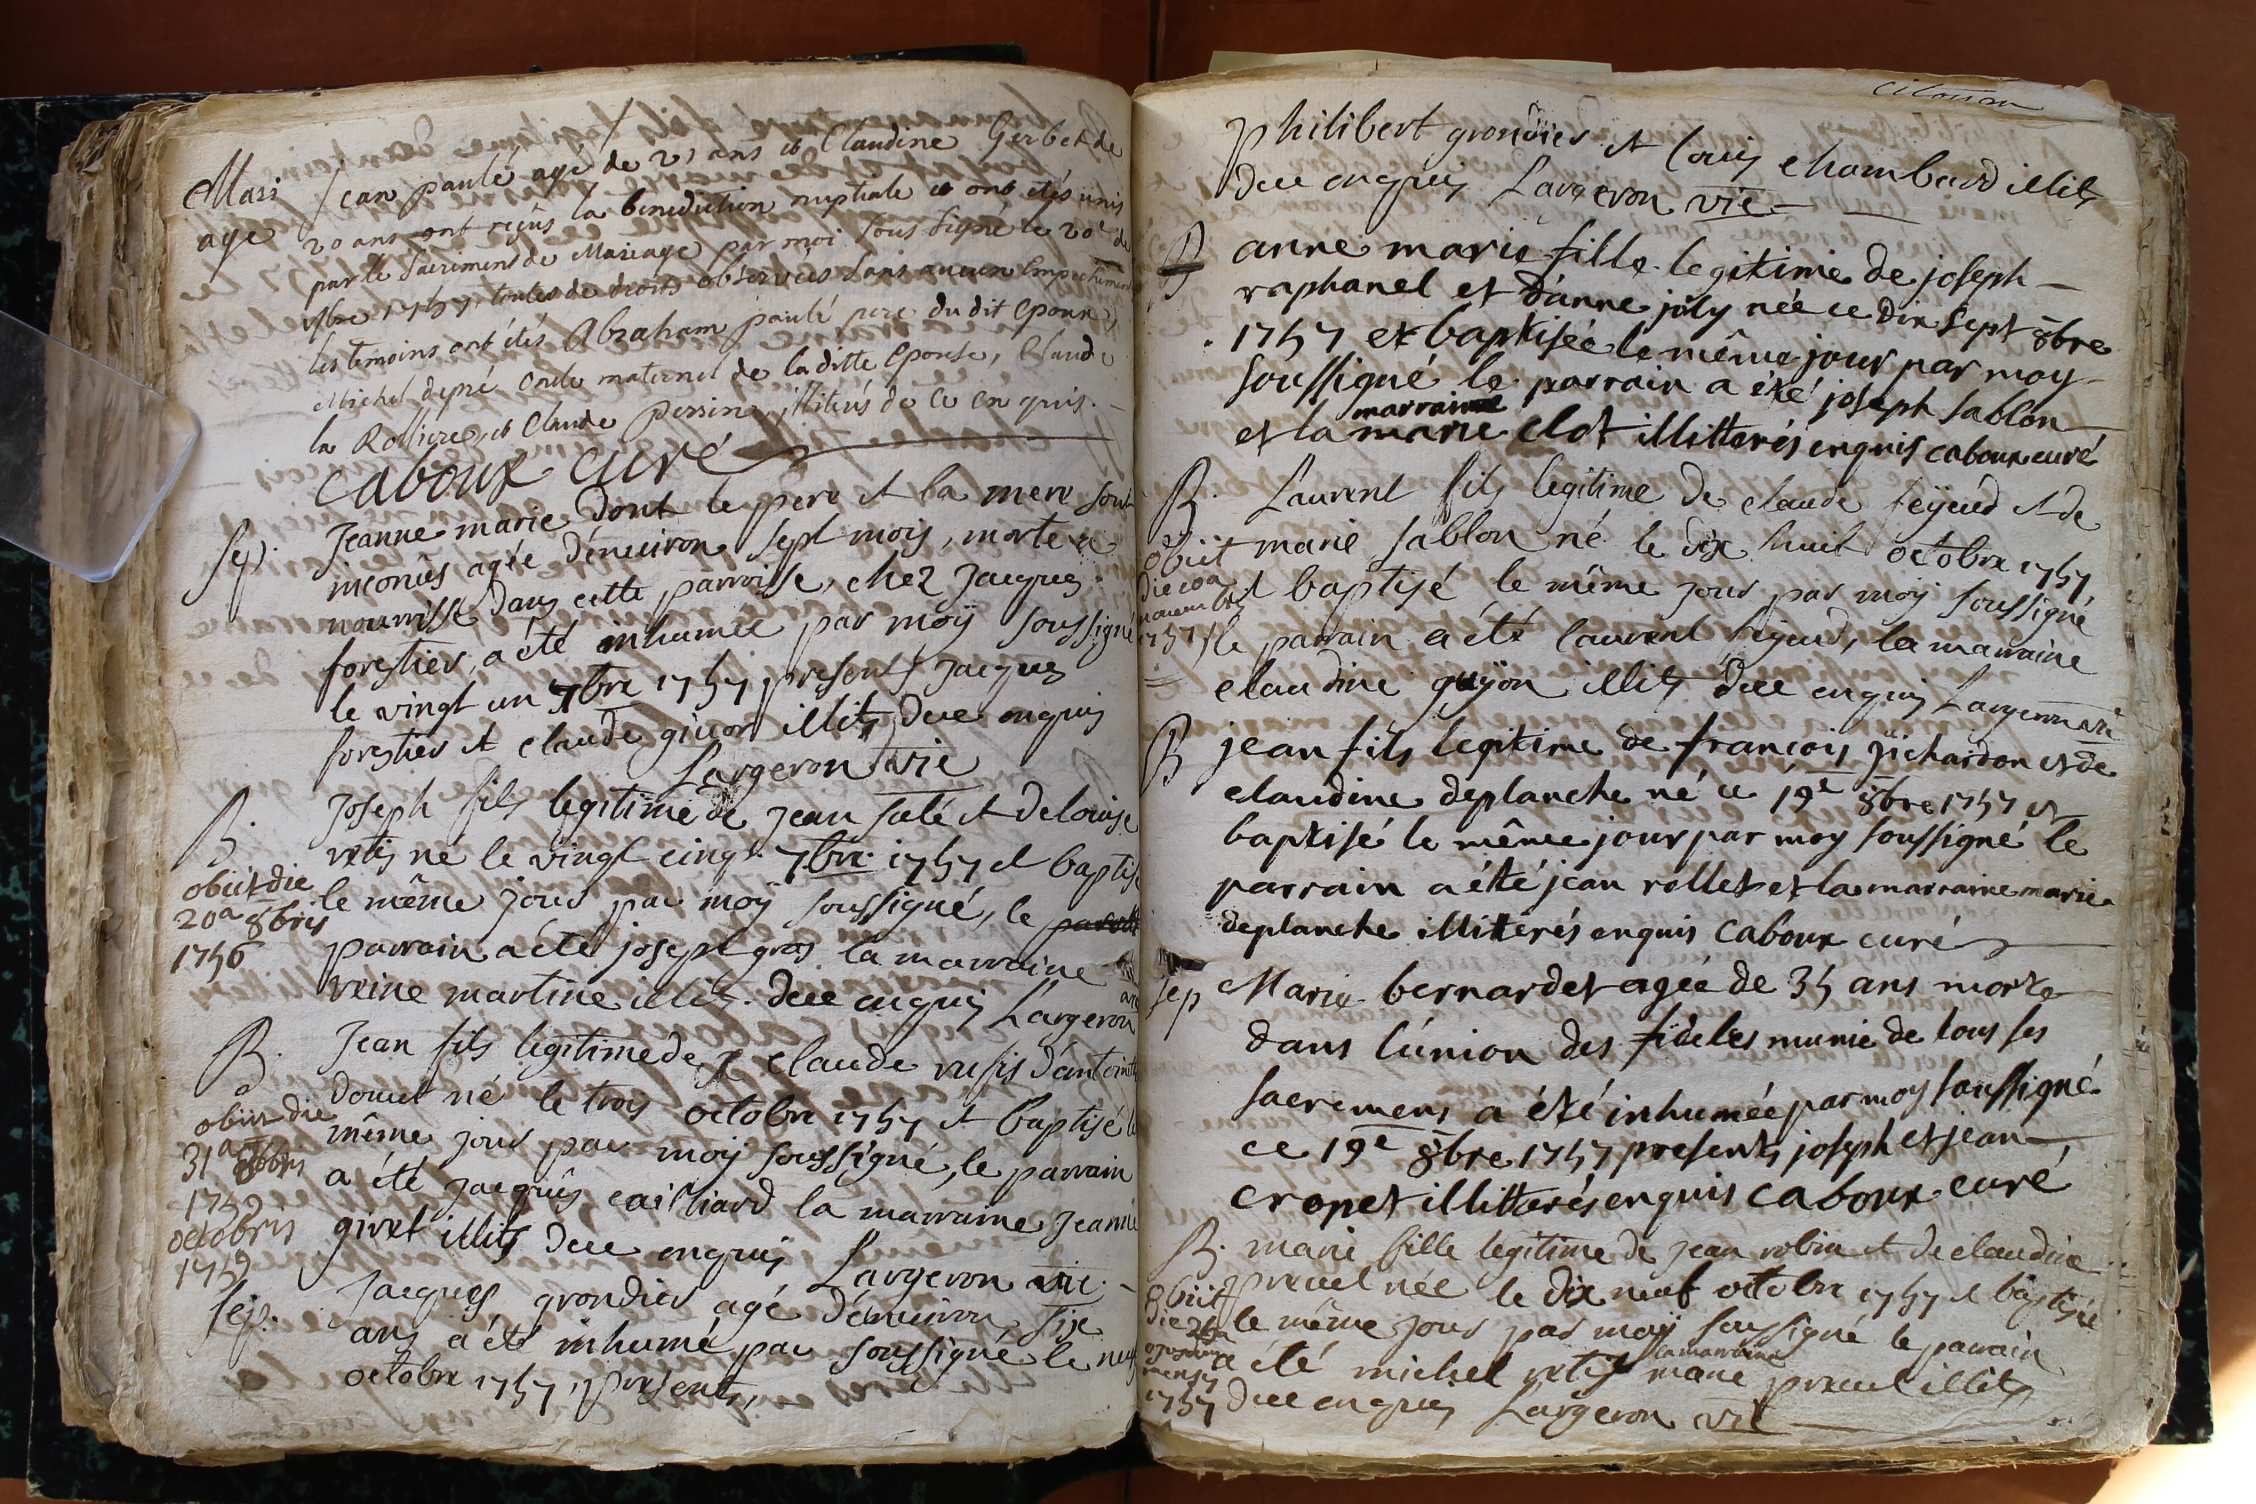 Mari
age
Jean paule agé de 21 ans et Claudine Gerbet de
20 ans ont reçûs la benediction nuptiale et ont étés unis
par le sacrement de Mariage par moi soussigné le 20e de
1757, toutes de droits observées sans aucun Empechement
les temoins ont étés Abraham paulé pere du dit Epoux,
Michel depré oncle maternel de la ditte Epouse, Claude
la Rolliere, et Claude perrin, illiterés de ce enquis.
caboux curé
Sep. Jeanne marie dont le pere et la mere sont
inconûs agée d'enuiron sept mois, morte en
nourrisse dans cette parroisse, chez Jacques
forestier, a été inhumée par moÿ soussigné
le vingt un 7bre 1757, presents Jacques
forestier et claude giuon illits dece enquis
Largeron vic
B. Joseph fils legitime de Jean salé et de louise
retis né le vingt cinq 7bre 1757 et baptisé
obiit die
20a 8bris
1756
le même jour par moÿ soussigné, le
parrain a été joseph gras la marraine
reine martine illits. dece enquis Largeron
vic
B. Jean fils legitime de claude rufis d'antoinette
né le trois octobre 1757 et baptisé le
obiit die
31a 8bris
1759
octobris
1759
même jour par moÿ soussigné, le parrain
a été jacques cailliard la marraine Jeanne
givet illits dece enquis
Largeron vic
Sep. Jacques grondier agé d'enuiron six
ans a été inhumé par soussigné le neuf
octobre 1757, presents,
philibert grondier et louis chambard illits
dece enquis Largeron vic
B anne marie fille legitime de joseph
raphanel et d'anne joly née ce dix sept 8bre
1757 et baptisée le même jour par moy
soussigné le parrain a été joseph sablon
et la marraine marie clot illitterés enquis caboux curé
B. Laurent fils legitime de claude feÿeud et de
marie sablon né le dix huit octobre 1757
obiit
die 10a
nouembris
1757
et baptisé le même jour par moÿ soussigné
le parrain a été laurent feÿeud, la marraine
claudine guÿon illits dece enquis Largeron vic
B jean fils legitime de francois jichardon et de
claudine deplanche né ce 19e 8bre 1757 et
baptisé le même jour par moy soussigné le
parrain a été jean rollet et la marraine marie
deplanche illiterés enquis caboux curé
Sep Marie bernardet agée de 35 ans morte
dans l'union des fideles munie de tous ses
sacremens a été inhumée par moy soussigné
ce 19e 8bre 1757 presents joseph et jean
cropet illitterés enquis caboux curé
B. marie fille legitime de jean robin et de claudine
preuel née le dix neuf octobre 1757 et baptisée
obiit
die
mensis
1757
le même jour par moÿ soussigné le parrain
a été michel retif la marraine marie preuel illits
dece enquis Largeron vic